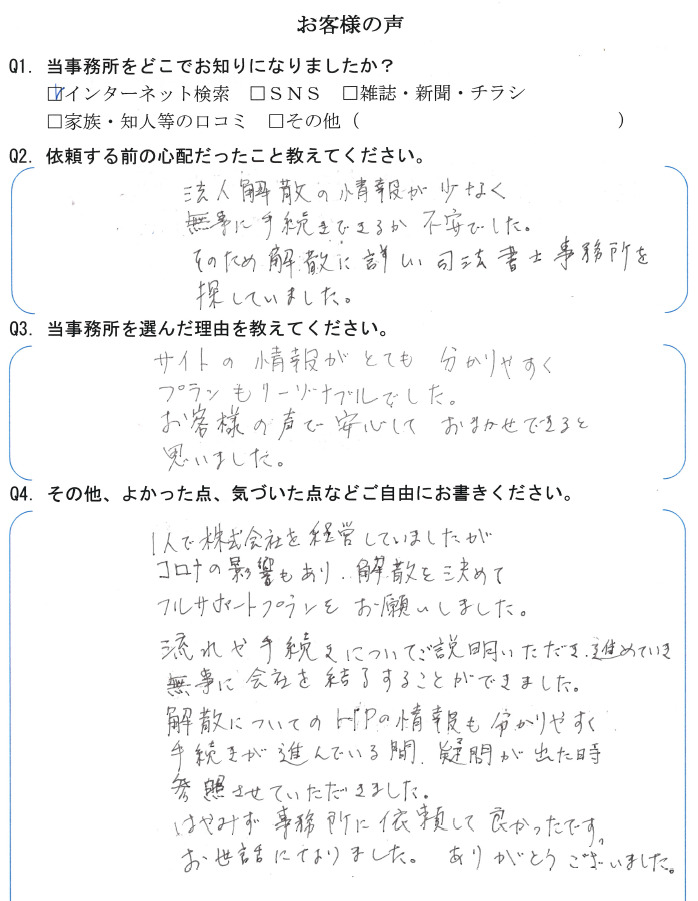 お客様の声
Q1. 当事務所をどこでお知りになりましたか？
☑インターネット検索　□ＳＮＳ　□雑誌・新聞・チラシ
□家族・知人等の口コミ　□その他（　　　　　　　　　　　　　　）
Q2. 依頼する前の心配だったこと教えてください。
法人解散の情報が少なく
無事に手続きできるか不安でした。
そのため解散に詳しい司法書士事務所を
探していました。
Q3. 当事務所を選んだ理由を教えてください。
サイトの情報がとても分かりやすく
プランもリーゾナブルでした。
お客様の声で安心しておまかせできると
思いました。
Q4. その他、よかった点、気づいた点などご自由にお書きください。
1人で株式会社を経営していましたが
コロナの影響もあり、解散を決めて
フルサポートプランをお願いしました。
流れや手続きについてご説明いただき、進めていき
無事に会社を結了することができました。
解散についてのHPの情報も分かりやすく
手続きが進んでいる間、疑問が出た時
参照させていただきました。
はやみず事務所に依頼して良かったです。
お世話になりました。ありがとうございました。